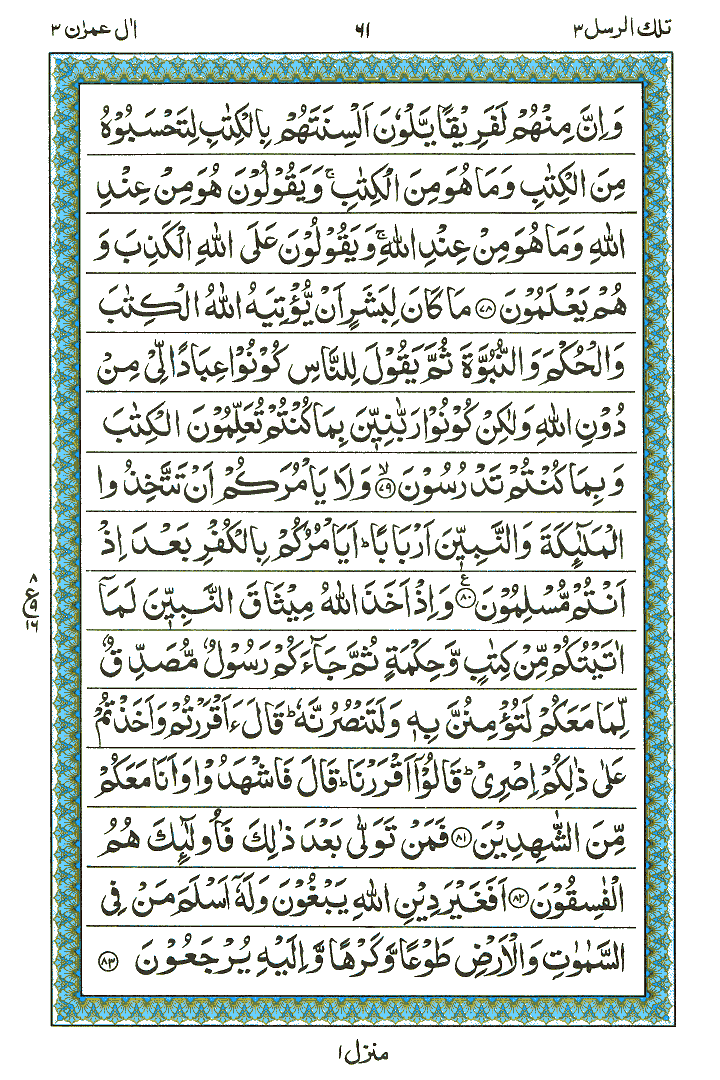 تلك الرسل ٣ ٦١ اٰل عمرٰن ٣
وَاِنَّ مِنْهُمْ لَفَرِيْقًا يَّلْوٗنَ اَلْسِنَتَهُمْ بِالْكِتٰبِ لِتَحْسَبُوْهُ
مِنَ الْكِتٰبِ وَمَا هُوَ مِنَ الْكِتٰبِ ۚ وَيَقُوْلُوْنَ هُوَ مِنْ عِنْدِ
اللّٰهِ وَمَا هُوَ مِنْ عِنْدِ اللّٰهِ ۚ وَيَقُوْلُوْنَ عَلَى اللّٰهِ الْكَذِبَ وَ
هُمْ يَعْلَمُوْنَ ﴿٧٨﴾ مَا كَانَ لِبَشَرٍ اَنْ يُّؤْتِيَهُ اللّٰهُ الْكِتٰبَ
وَالْحُكْمَ وَالنُّبُوَّةَ ثُمَّ يَقُوْلَ لِلنَّاسِ كُوْنُوْا عِبَادًا لِّىْ مِنْ
دُوْنِ اللّٰهِ وَلٰكِنْ كُوْنُوْا رَبّٰنِيّٖنَ بِمَا كُنْتُمْ تُعَلِّمُوْنَ الْكِتٰبَ
وَبِمَا كُنْتُمْ تَدْرُسُوْنَ ﴿٧٩﴾ ۙ وَلَا يَاْمُرَكُمْ اَنْ تَتَّخِذُوا
الْمَلٰٓئِكَةَ وَالنَّبِيّٖنَ اَرْبَابًا ؕ اَيَاْمُرُكُمْ بِالْكُفْرِ بَعْدَ اِذْ
اَنْتُمْ مُّسْلِمُوْنَ ﴿٨٠﴾ ع وَاِذْ اَخَذَ اللّٰهُ مِيْثَاقَ النَّبِيّٖنَ لَمَاۤ
اٰتَيْتُكُمْ مِّنْ كِتٰبٍ وَّحِكْمَةٍ ثُمَّ جَآءَكُمْ رَسُوْلٌ مُّصَدِّقٌ
لِّمَا مَعَكُمْ لَتُؤْمِنُنَّ بِهٖ وَلَتَنْصُرُنَّهٗ ؕ قَالَ ءَاَقْرَرْتُمْ وَاَخَذْتُمْ
عَلٰى ذٰلِكُمْ اِصْرِىْ ؕ قَالُوْۤا اَقْرَرْنَا ؕ قَالَ فَاشْهَدُوْا وَاَنَا مَعَكُمْ
مِّنَ الشّٰهِدِيْنَ ﴿٨١﴾ فَمَنْ تَوَلّٰى بَعْدَ ذٰلِكَ فَاُولٰٓئِكَ هُمُ
الْفٰسِقُوْنَ ﴿٨٢﴾ اَفَغَيْرَ دِيْنِ اللّٰهِ يَبْغُوْنَ وَلَهٗۤ اَسْلَمَ مَنْ فِى
السَّمٰوٰتِ وَالْاَرْضِ طَوْعًا وَّكَرْهًا وَّاِلَيْهِ يُرْجَعُوْنَ ﴿٨٣﴾
٨
ع
٩
١٦
منزل ١